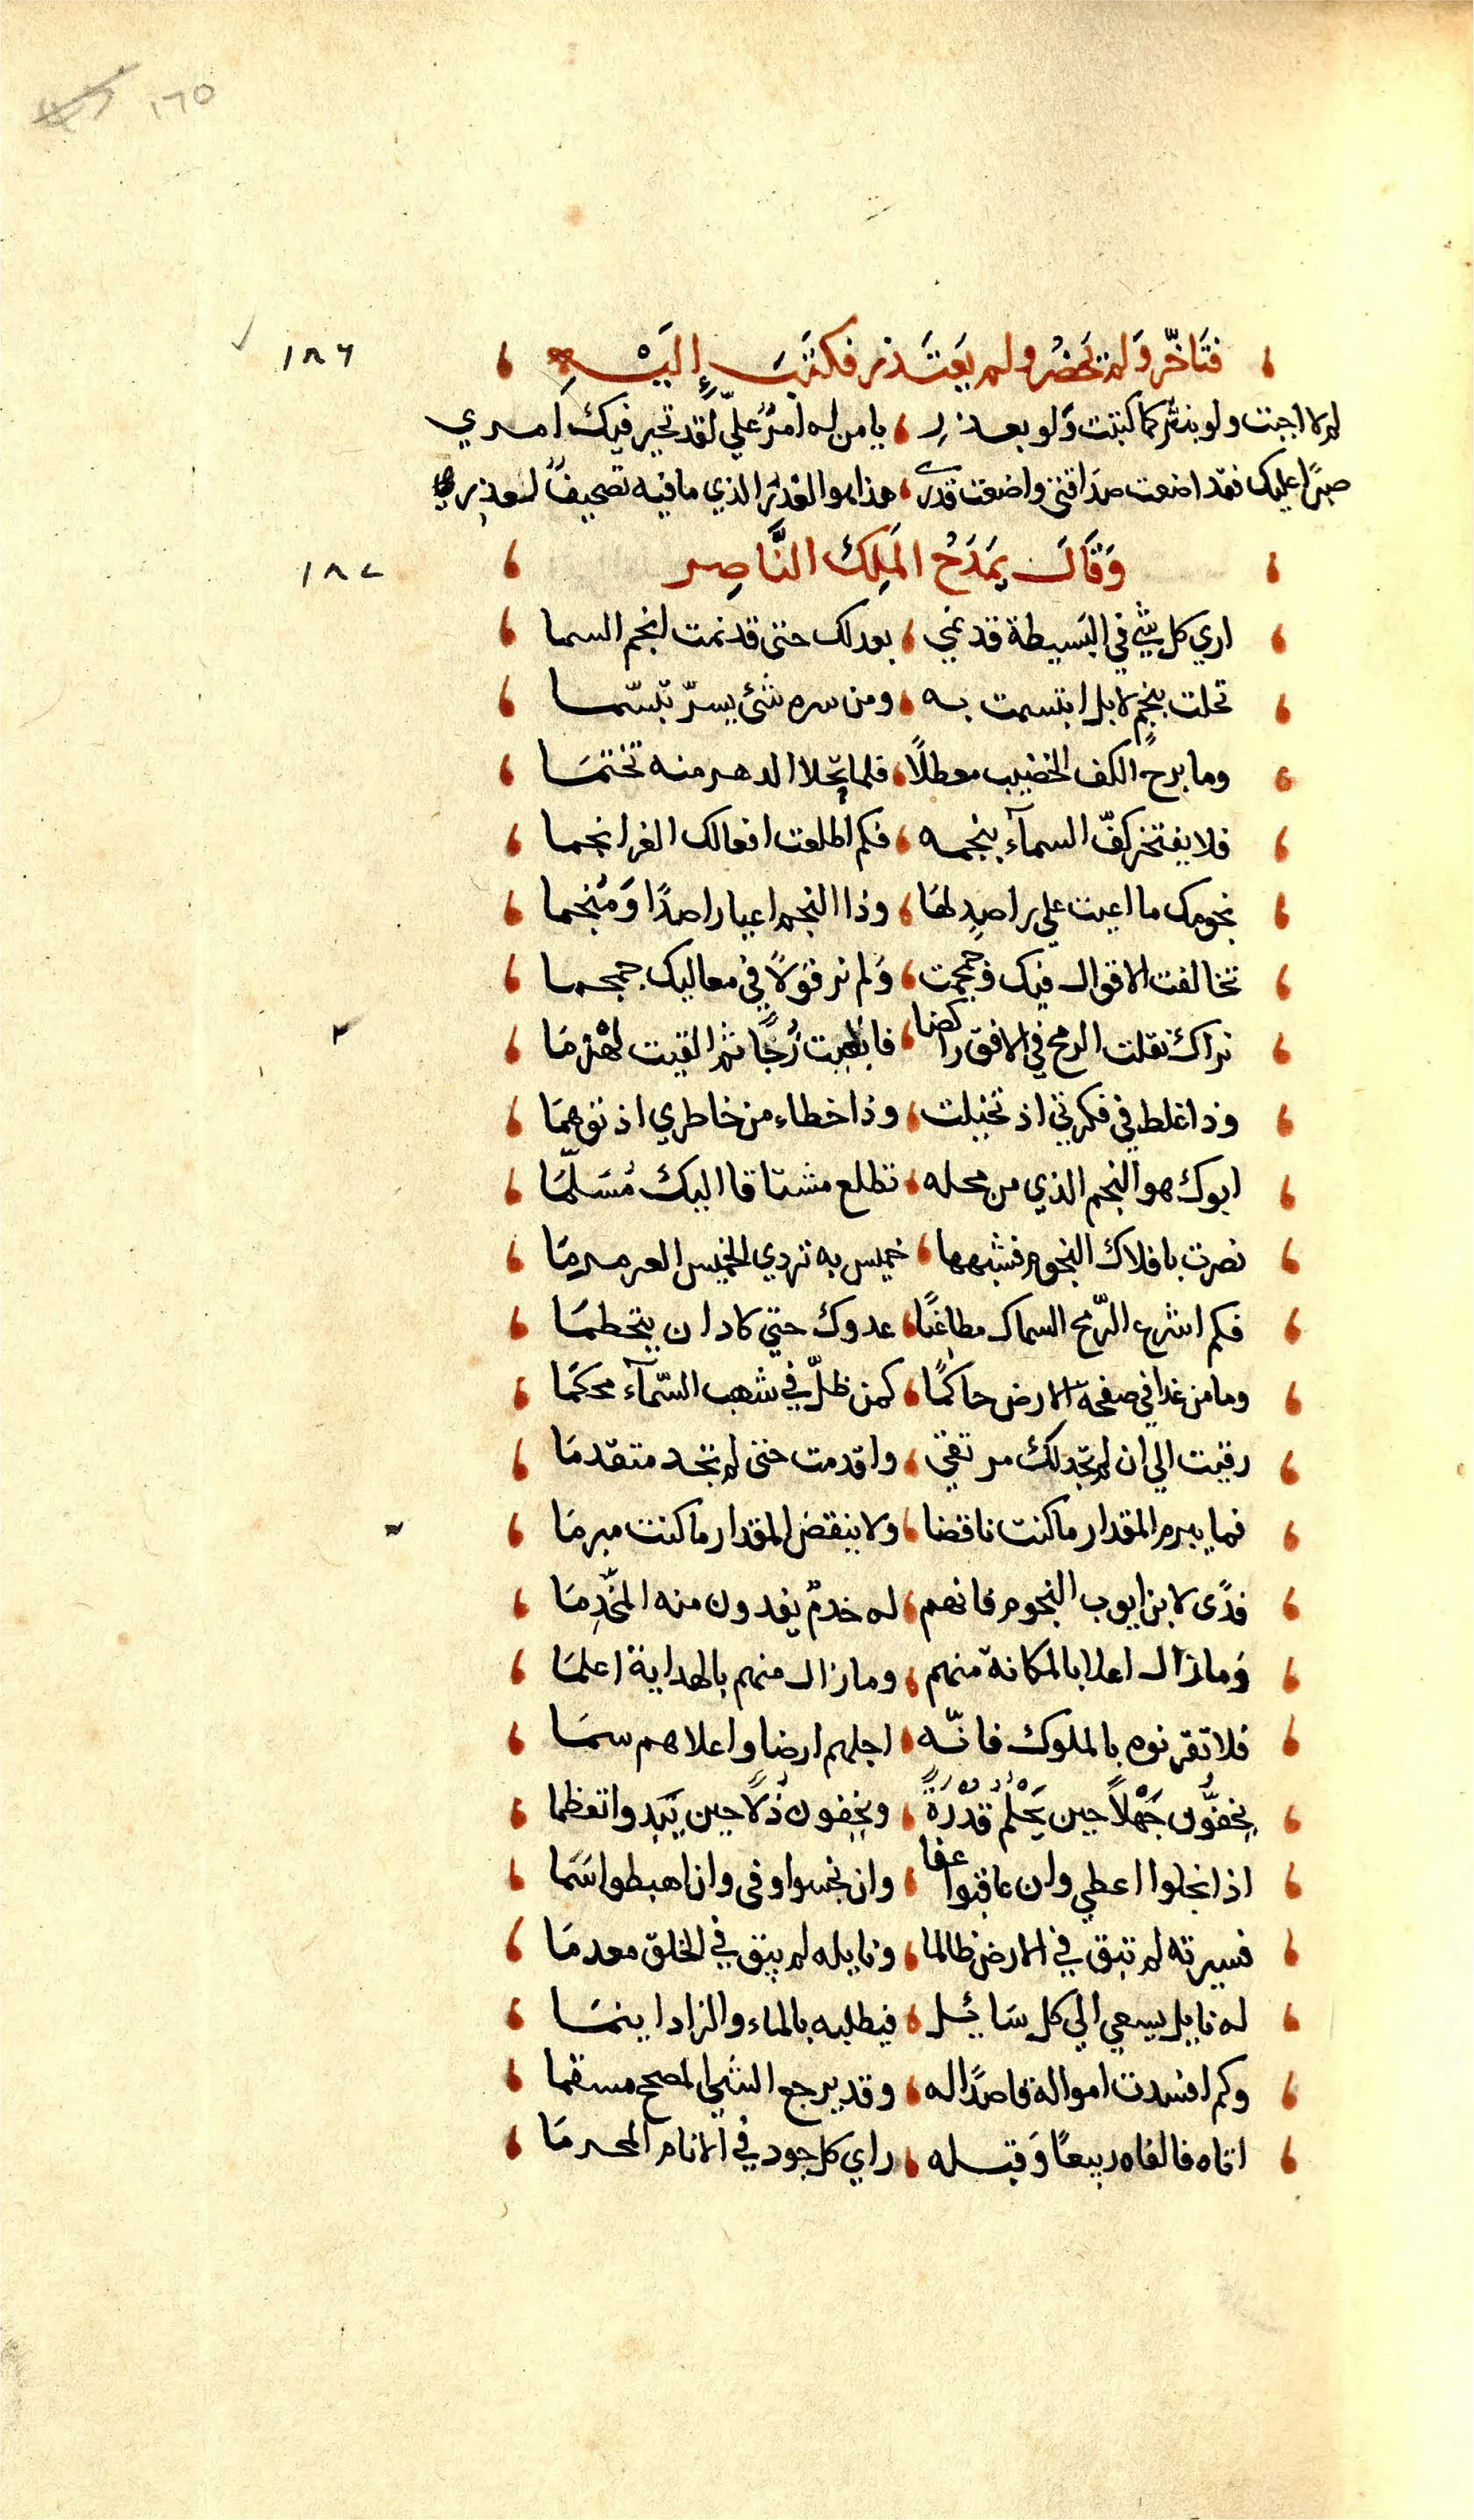 ١٦٥
فتَاخّر وَلم يَحضُر ولم يَعتَذر فكتَبَ إِليَهِ ١٨٦
لم لا اجبت ولو بنثر كما كتبت وَلو بعذر يا من له امرٌ عليّ لَقد تحير فيك امري
صبرًا عليك فقد اضعت صداقتي واضعت قدري هذا هو الغدر الذي ما فيه تصحيفٌ لعذر
وَقَالَ يَمدَحُ المَلِكَ النَّاصِر ١٨٧
اري كل شي في البَسيطة قد نمي بعدلك حتى قد نمت انجم السما
تحلت بنجمٍ لا بل ابتسمت به ومن سره شئ يسرّ تبسّما
وما برح الكف الخضيب معطلًا فلما تحلا الدهر منه تختمَا
فلا يفتخر كفّ السمآء بنجمه فكم اطلعت افعالك الغر انجما
نجومك ما اعيت علي راصدٍ لهَا وذا النجم اعيا راصدًا وَمُنجما
تخالفت الاقوال فيك فجمجمت وَلم نر قَولًا في معاليك جمجما
نراك نقلت الرمح في الافق راكضا فابقيت زُجًا ثم القيت لهْذمَا
وذا غلط في فكرتي اذ تخيلت وذا خطاء من خاطري اذ توهمَا
ابوك هو النجم الذي من محله تطلع مشتاقا اليك مُسَلّمَا
نصرت بافلاك النجوم فشبهها خميس به تردي الخميس العرمرمَا
فكم اشرع الرّمح السماك مطاعنًا عدوك حتي كاد ان يتحطمَا
وما من غدا في صفحة الارض حاكمًا كمن ظلّ في شهب السّمآء محكمَا
رقيت الي ان لم تجد لك مرتقي واقدمت حتى لم تجد متقدمَا
فما يبرم المقدار ما كنت ناقضا ولا ينقض المقدار ما كنت مبرمَا
فدًى لابن ايوب النجوم فانهم له خدمٌ يفدون منه المخَّدمَا
وَما زال اعلا بالمكانة منهم وما زال منهم بالهداية اعلمَا
فلا تقرنوه بالملوك فانّه اجلهم ارضا واعلاهم سمَا
يخفوُّن جَهْلًا حين يَحْلُمُ قُدْرَةً ويخفون ذُلًا حين يَبَدوا تعظما
اذا بخلوا اعطي وان عاقبوا عفا وان بخسوا وفى وان اهبطوا سَما
فسيرته لم تبق في الارض ظالما ونايله لم يبق في الخلق معدمَا
له نايل يسعي الي كل سَائل فيطلبه بالماء والزاد اينمَا
وكم افسدت امواله قاصدًا له وقد يرجع الشي المصحح مسقما
اتاه فالفاه ربيعًا وَقبله راي كل جود في الانام المحرمَا